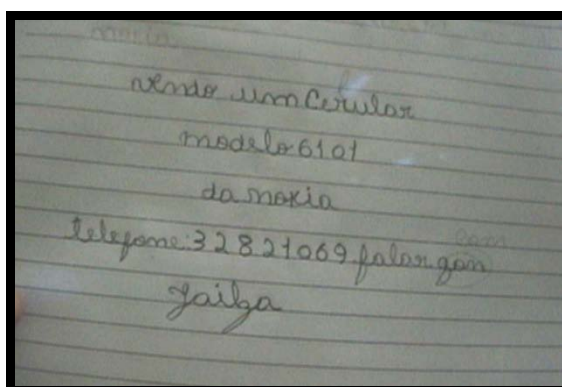 vendo um Cerular
modelo 6101
da noxia
telefone: 32821069 falar gom